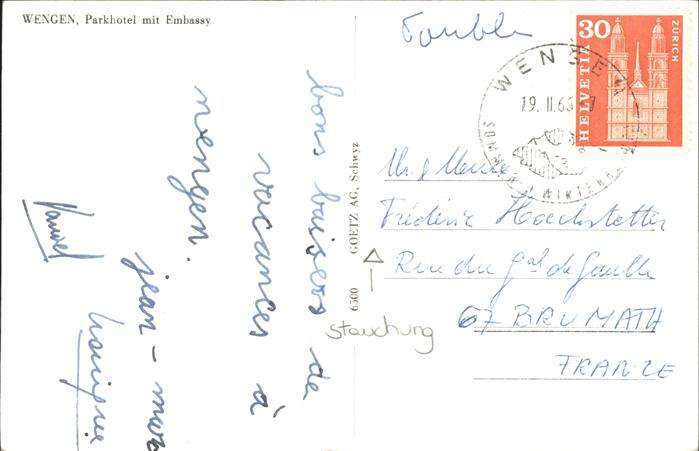 WENGEN, Parkhotel mit Embassy
bons baisers de
vacances à
wengen.
jean - marc
6500 GOETZ AG, Schwyz
Stauchung
30
HELVETIA
ZÜRICH
WENGEN
19. II. 6
Frédéric Hoechstetter
Rue du Gal de Gaulle
67 BRUMATH
FRANCE